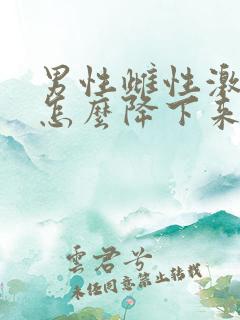 男性雌性激
怎麼降下來
雲君兮
未经同意禁止转载